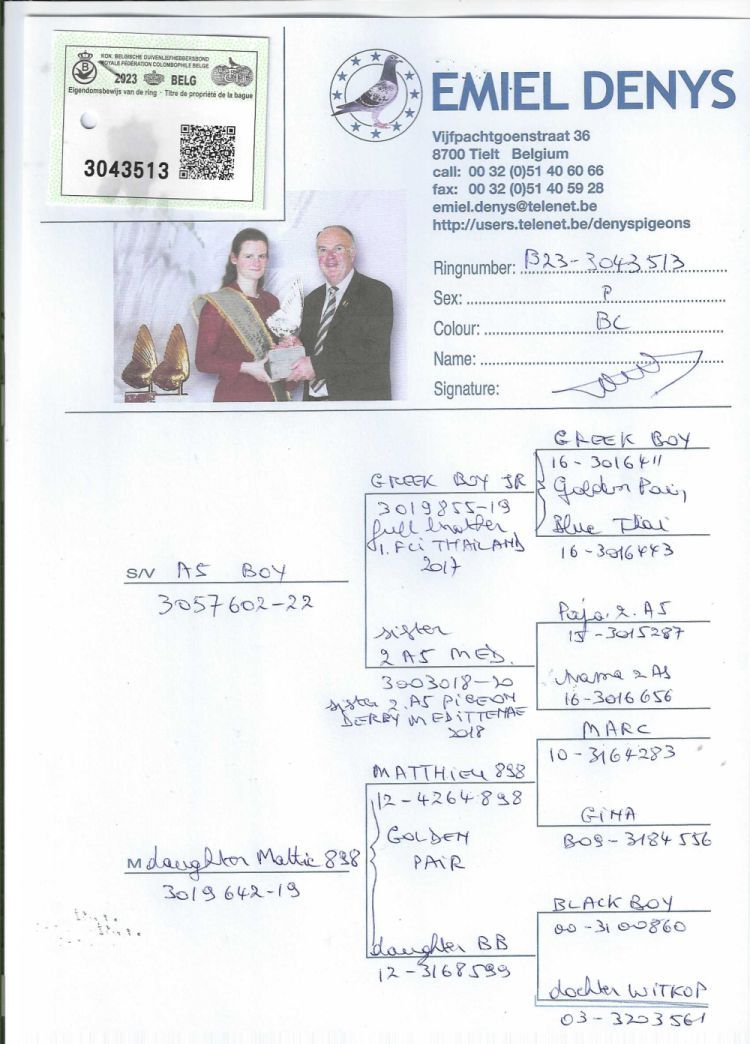 KON. BELGISCHE DUIVENLIEFHEBBERSBOND
ROYALE FÉDÉRATION COLOMBOPHILE BELGE
2023 BELG
Eigendomsbewijs van de ring - Titre de propriété de la bague
3043513
EMIEL DENYS
Vijfpachtgoenstraat 36
8700 Tielt Belgium
call: 00 32 (0)51 40 60 66
fax: 00 32 (0)51 40 59 28
emiel.denys@telenet.be
http://users.telenet.be/denyspigeons
Ringnumber: B23-3043513
Sex: P
Colour: BC
Name:
Signature:
GREEK BOY
16-3016411
Golden Pair,
Blue Thai
16-3016443
GREEK BOY JR
3019855-19
full brother
1. FCI THAILAND
2017
S/V AS BOY
3057602-22
sister
2 AS MED.
3003018-20
sister 2. AS PIGEON
DERBY MEDITTENAE
2018
Papa 2. AS
15-3015287
Mama 2 AS
16-3016656
MARC
10-3164283
MATTHIEU 898
12-4264898
GOLDEN
PAIR
GINA
B09-3184556
M daughter Mattie 898
3019642-19
BLACK BOY
00-3100860
daughter BB
12-3168599
dochter WITKOP
03-3203561